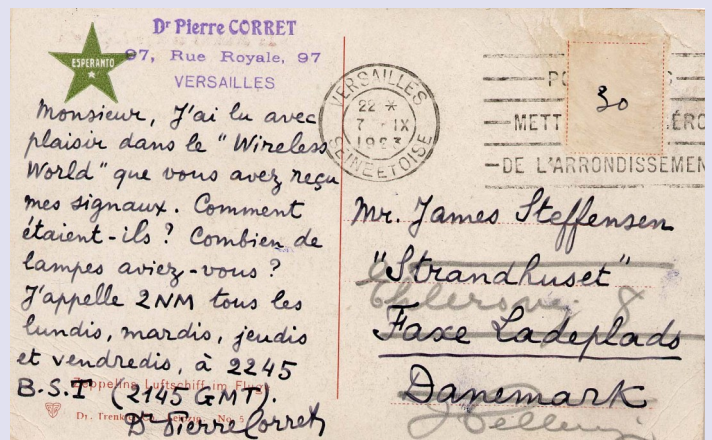 Dr Pierre CORRET
97, Rue Royale, 97
VERSAILLES
ESPERANTO
Monsieur, J'ai lu avec
plaisir dans le "Wireless
World" que vous avez reçu
mes signaux. Comment
étaient-ils ? Combien de
lampes aviez-vous ?
J'appelle 2NM tous les
lundis, mardis, jeudis
et vendredis, à 2245
B.S.T (2145 GMT).
Dr Pierre Corret
Zeppelins Luftschiff im Flug
Dr. Trenkler Leipzig No. 5
VERSAILLES
22 *
7 - IX
1923
SEINE ET OISE
30
METT
DE L'ARRONDISSEMEN
Mr. James Steffensen
"Strandhuset"
Faxe Ladeplads
Danemark